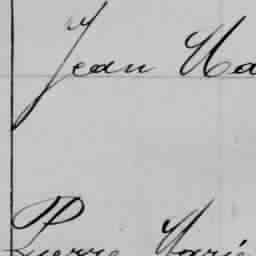 Jean Ma
Pierre Marie